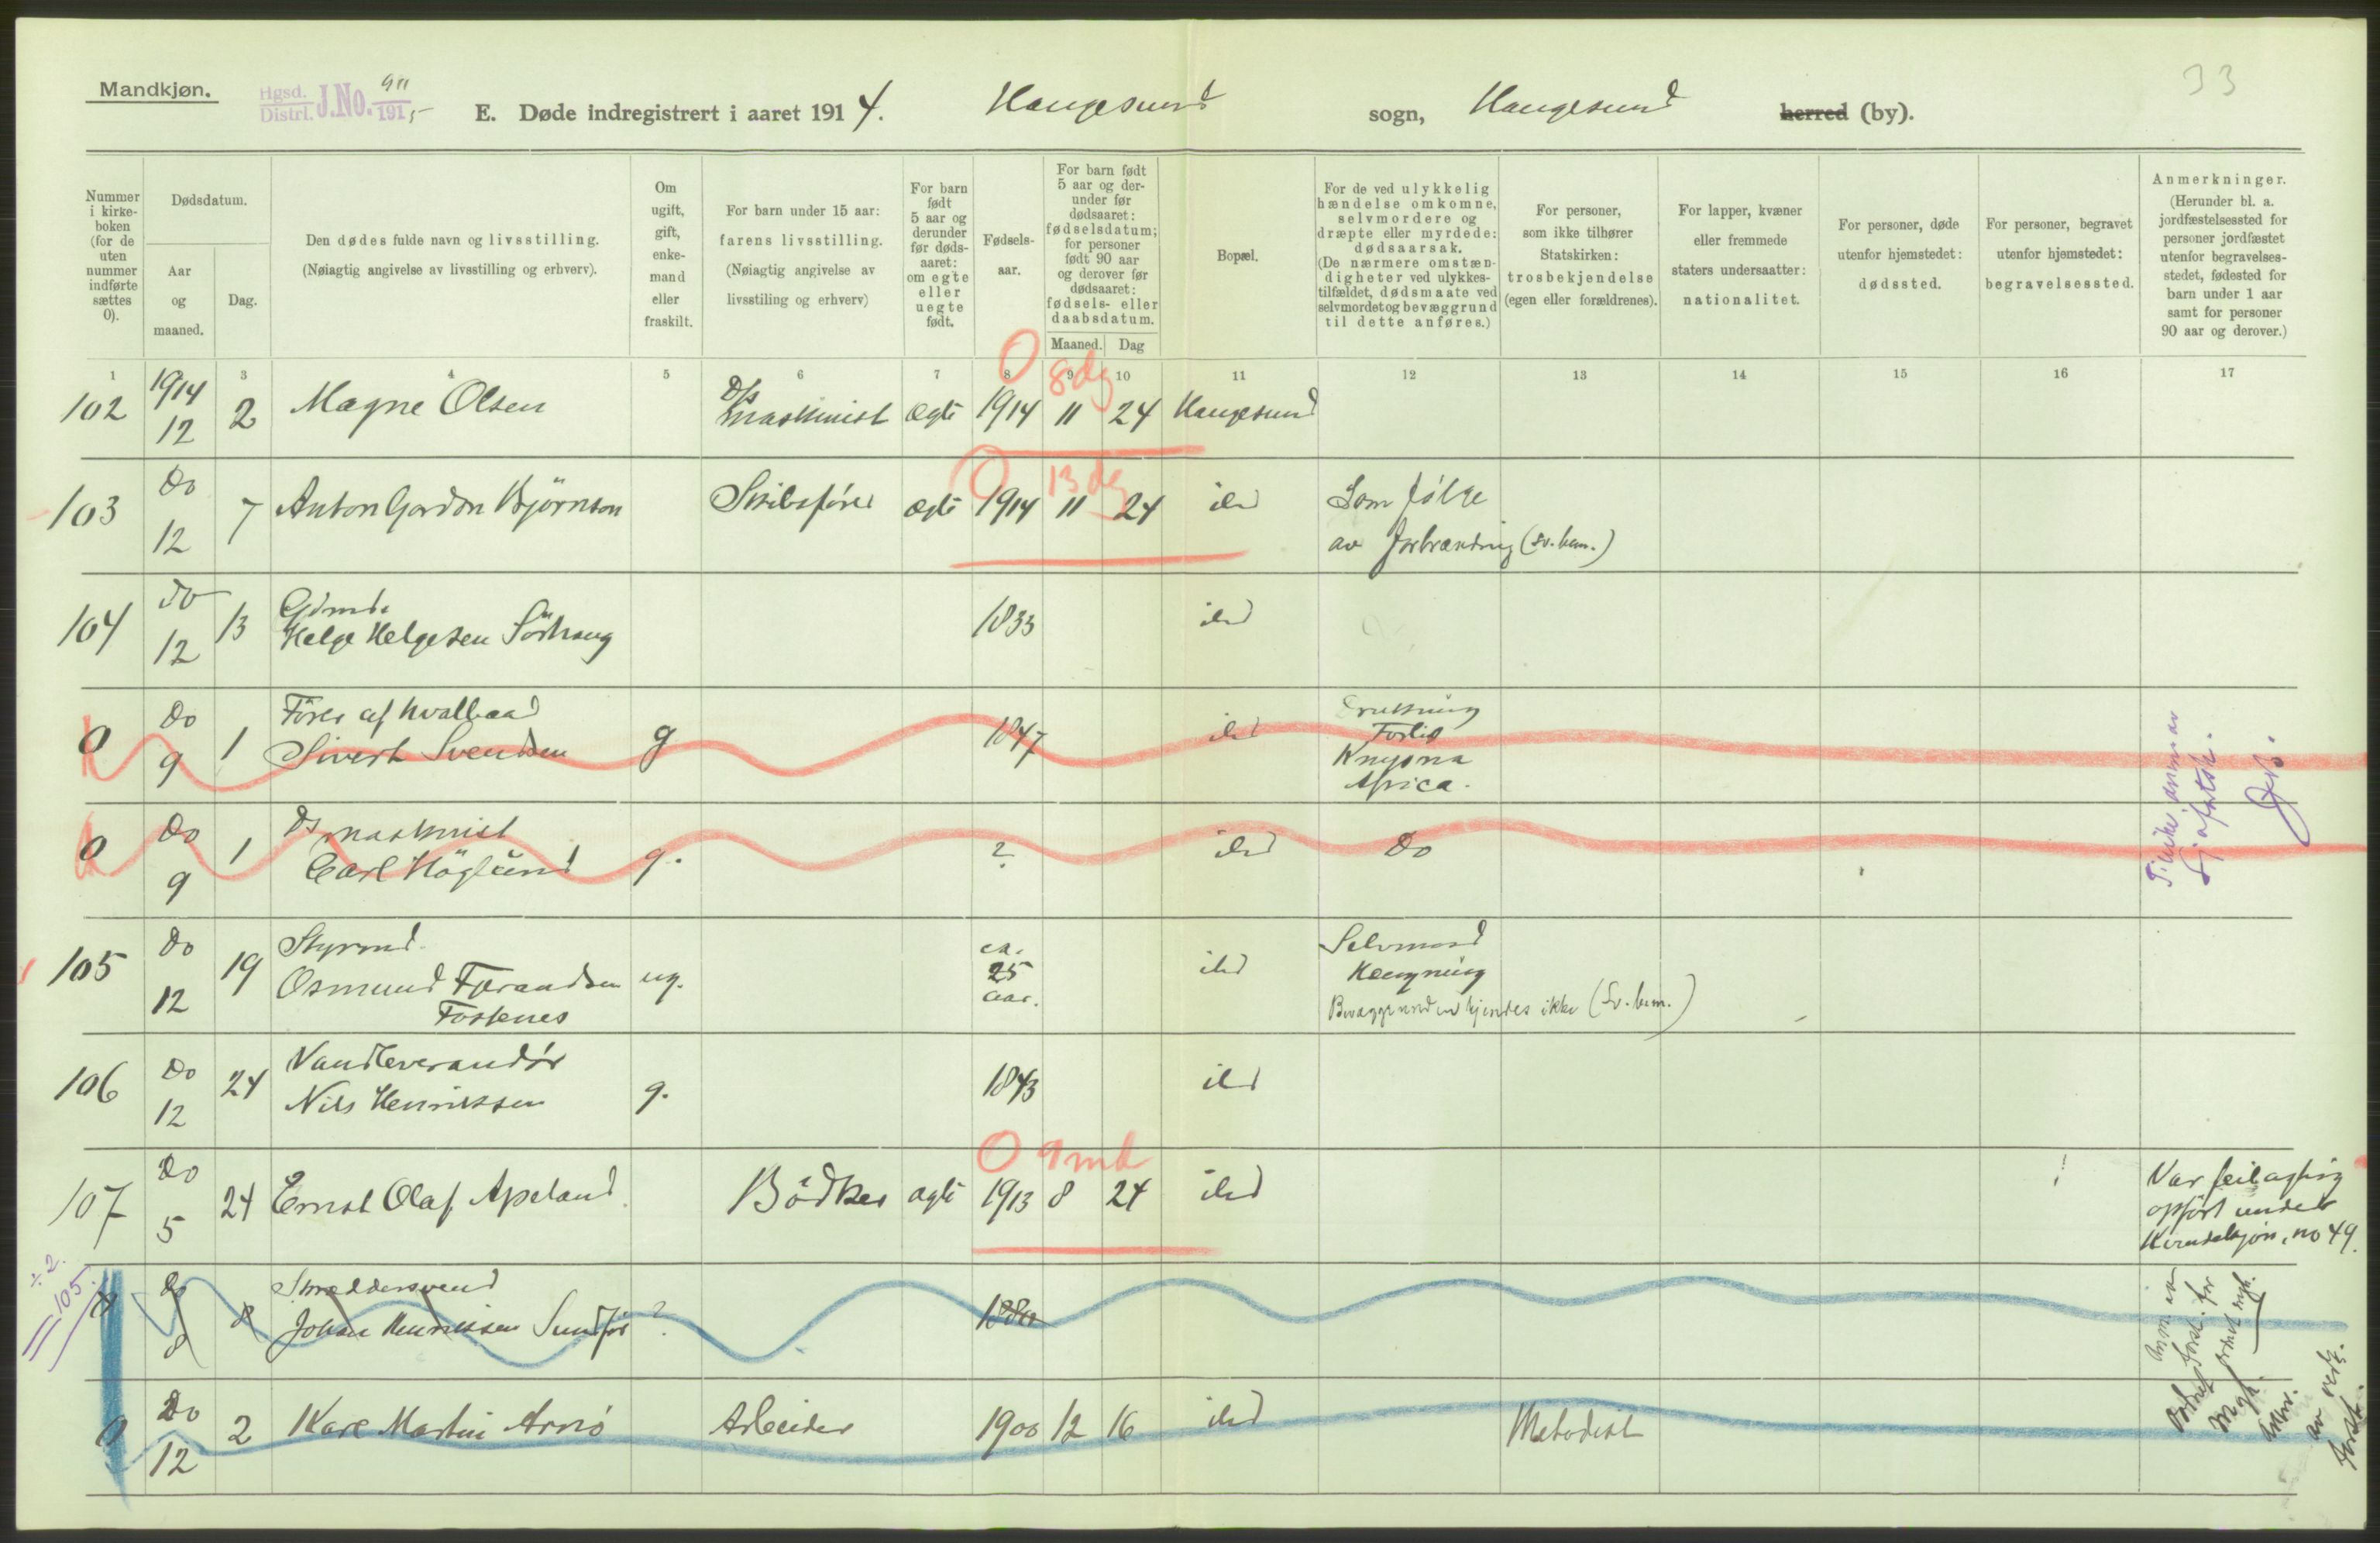 Mandkjøn.
Hgsd. Distrl. J.No. 911 1915
E. Døde indregistrert i aaret 1914. Haugesund sogn, Haugesund herred (by).
33
Nummer i kirke-boken (for de uten nummer indførte sættes 0).
Dødsdatum.
Aar og maaned.
Dag.
Den dødes fulde navn og livsstilling.
(Nøiagtig angivelse av livsstilling og erhverv).
Om ugift, gift, enke-mand eller fraskilt.
For barn under 15 aar: farens livsstilling.
(Nøiagtig angivelse av livsstiling og erhverv)
For barn født 5 aar og derunder før døds-aaret: om egte eller uegte født.
Fødsels-aar.
For barn født 5 aar og der-under før dødsaaret: fødselsdatum; for personer født 90 aar og derover før dødsaaret: fødsels- eller daabsdatum.
Maaned. Dag
Bopæl.
For de ved ulykkelig hændelse omkomne, selvmordere og dræpte eller myrdede: dødsaarsak.
(De nærmere omstæn-digheter ved ulykkes-tilfældet, dødsmaate ved selvmordet og bevæggrund til dette anføres.)
For personer, som ikke tilhører Statskirken: trosbekjendelse (egen eller forældrenes).
For lapper, kvæner eller fremmede staters undersaatter: nationalitet.
For personer, døde utenfor hjemstedet: dødssted.
For personer, begravet utenfor hjemstedet: begravelsessted.
Anmerkninger.
(Herunder bl. a. jordfæstelsessted for personer jordfæstet utenfor begravelses-stedet, fødested for barn under 1 aar samt for personer 90 aar og derover.)
1 3 4 5 6 7 8 9 10 11 12 13 14 15 16 17
0 8 dg
102 1914 12 2 Magne Olsen D/s maskinist ægte 1914 11 24 Haugesund
0 13 dg
103 Do 12 7 Anton Gordon Bjørnson Skibsfører ægte 1914 11 24 ibd Som følge
av forbrænding (sv. bem.)
104 Do 12 13 Gdmd.
Helge Helgesen Sörhaug 1833 ibd
0 Do 9 1 Fører af hvalbaad
Sivert Svendsen g 1847 ibd Drukning
Forlis
Knysna
Africa.
0 Do 9 1 Ds maskinist
Carl Höglund g. ? ibd Do
105 Do 12 19 Styrmd.
Osmund Tjerandsen
Fosenes ug. ca. 25 aar. ibd Selvmord
Hængning
Bevæggrunden kjendes ikke (Sv. bem.)
106 Do 12 24 Vandleverandør
Nils Henriksen g. 1843 ibd
0 9 md
107 Do 5 24 Ernst Olaf Apeland Bødker ægte 1913 8 24 ibd Var feilagtig
opført under
Kvindekjøn, no 49.
÷ 2.
105.
0 Do 8 8 Skræddersvend
Johan Henriksen Sundfør ?
0 Do 12 2 Karl Martin Arnø Arbeider 1900 12 16 ibd Metodist